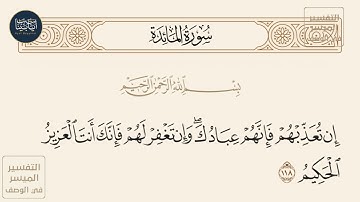 سُورَةُ المَائِدَةِ
بِسْمِ اللَّهِ الرَّحْمَٰنِ الرَّحِيمِ
إِن تُعَذِّبْهُمْ فَإِنَّهُمْ عِبَادُكَ ۖ وَإِن تَغْفِرْ لَهُمْ فَإِنَّكَ أَنتَ الْعَزِيزُ
الْحَكِيمُ ١١٨
التفسير
الميسر
في الوصف